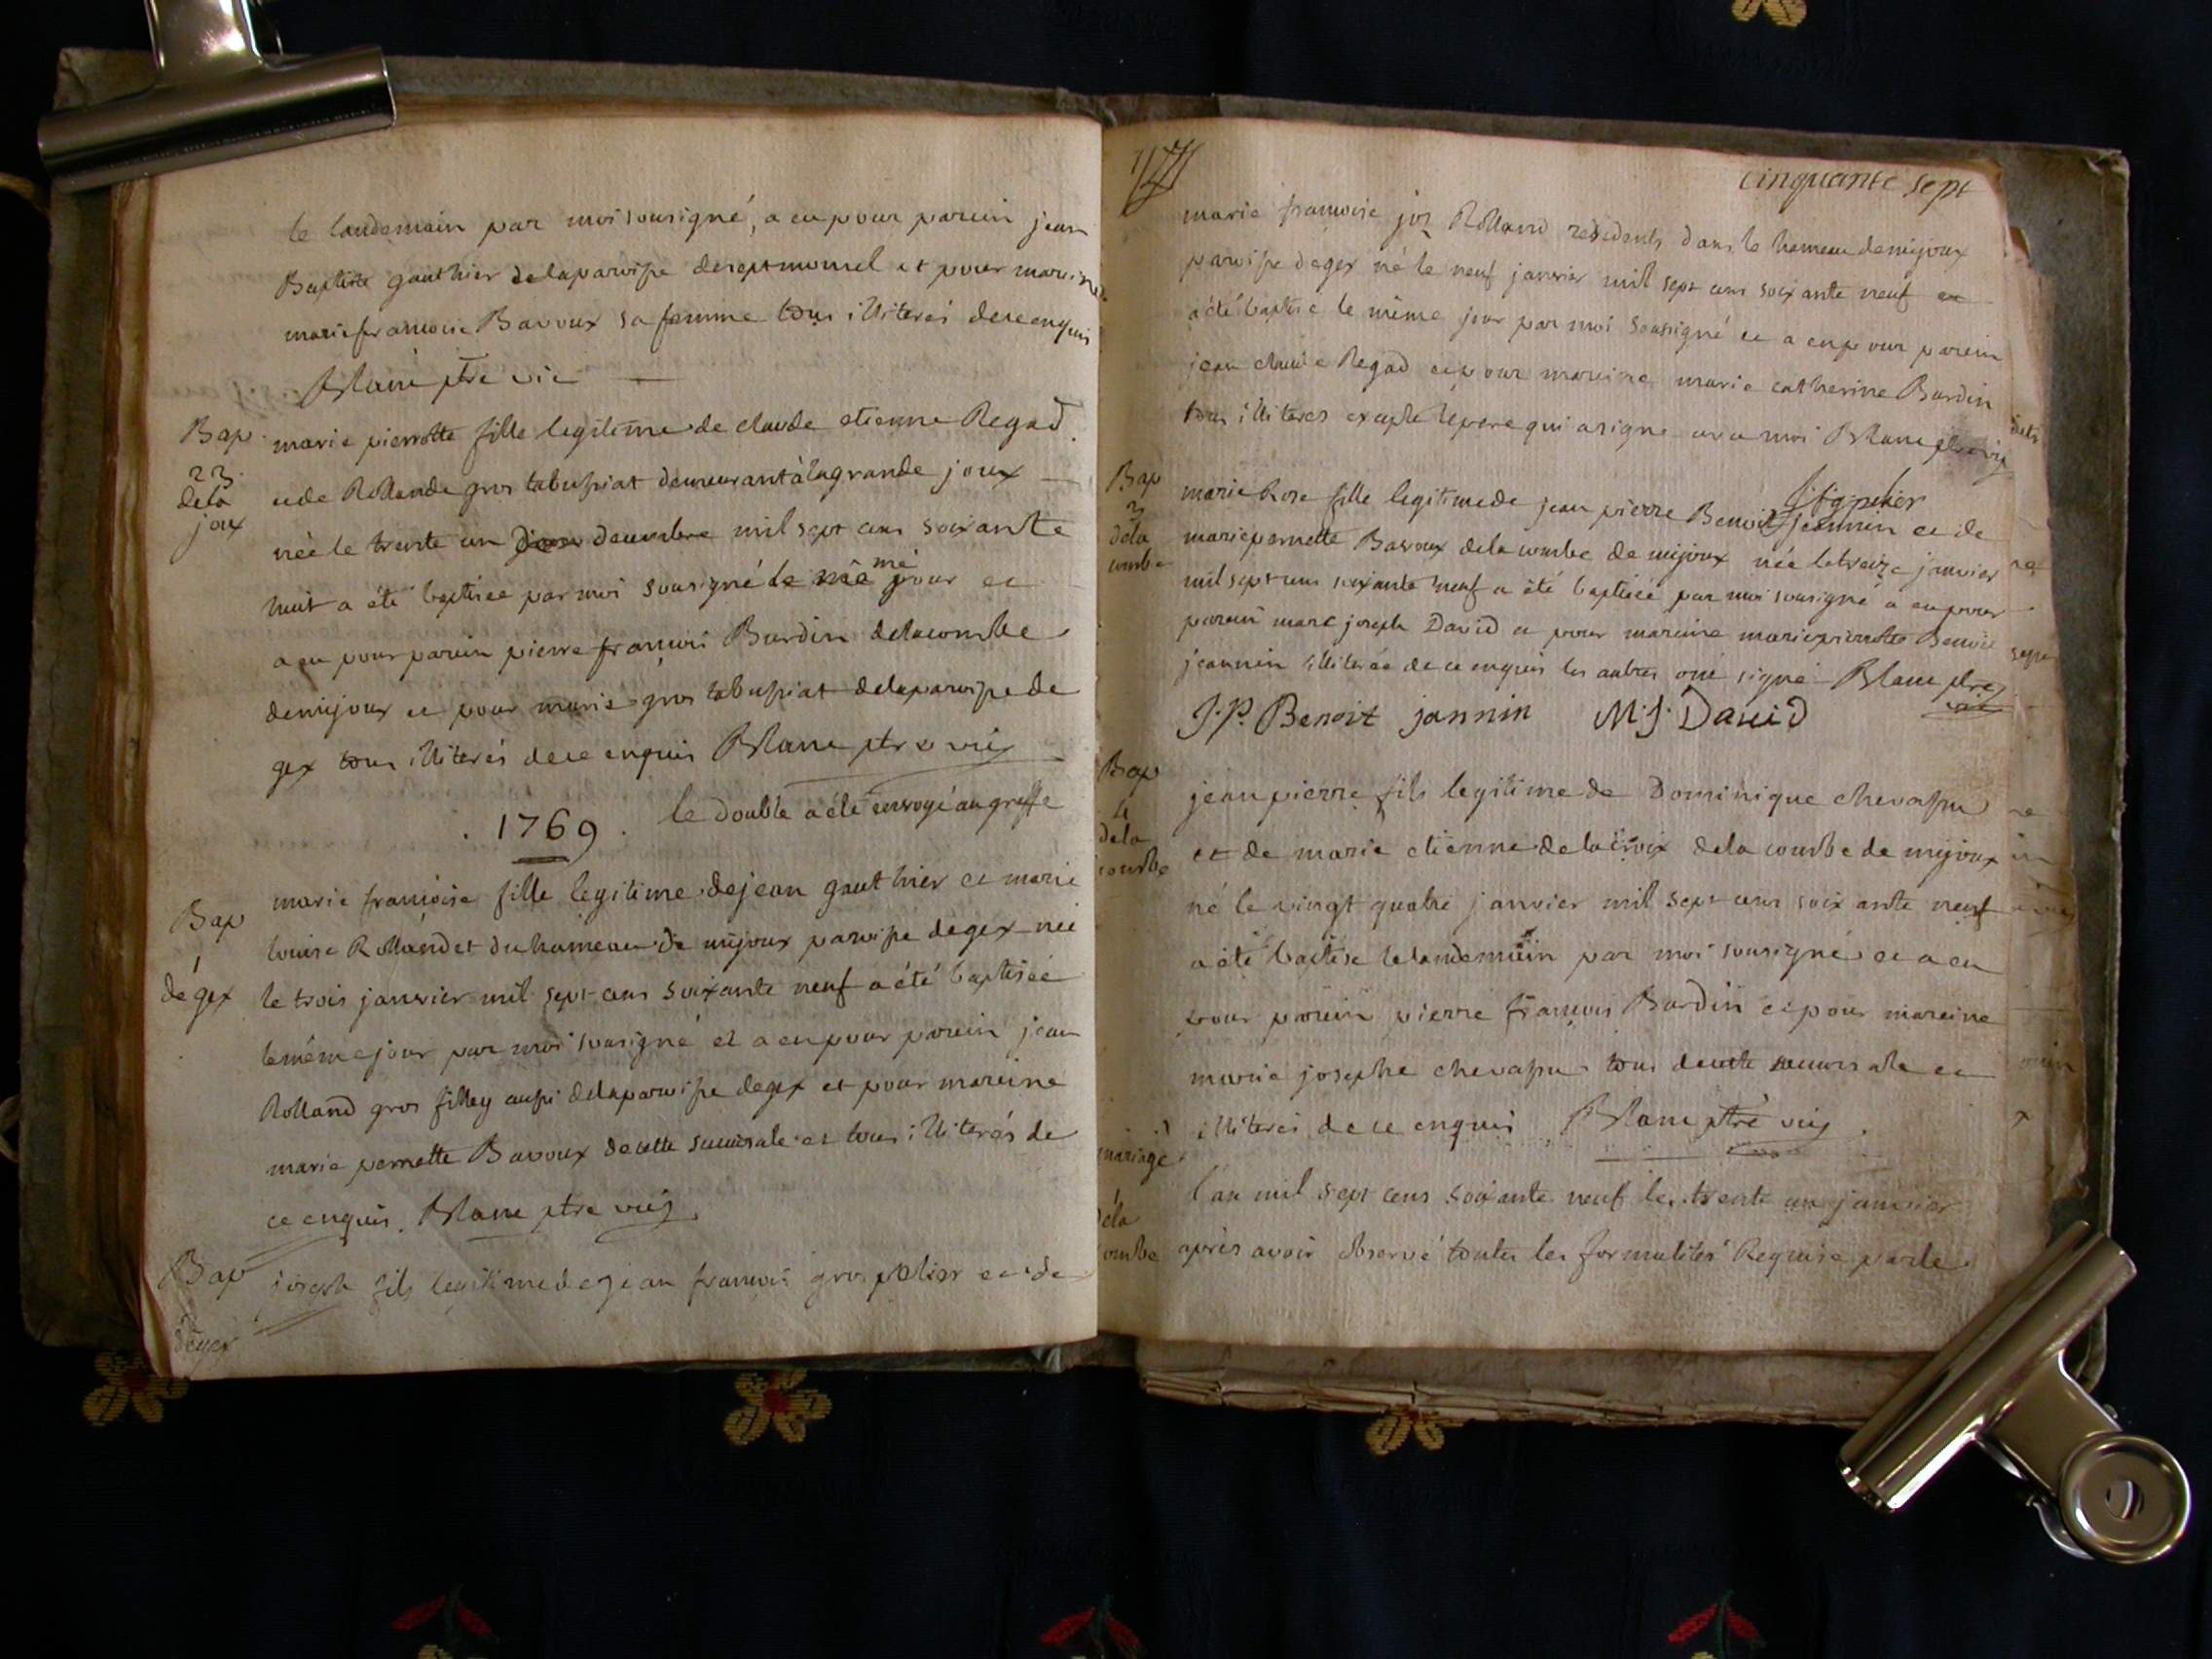 le landemain par moi sousigné, a eu pour parein jean
Baptiste gauthier de la paroisse de septmoncel et pour mareine
marie francoise Bavoux sa femme tous illiterés de ce enquis
Blanc ptre vic
Bap
23
de la
joux
marie pierrotte fille legitime de claude etienne Regad
et de Rollande gros tabussiat demeurant à la grande joux
née le trente un decembre mil sept cens soixante
huit a été baptisée par moi sousigné le même jour et
a eu pour parein pierre francois Burdin de la combe
de mijoux et pour marie gros tabussiat de la paroisse de
gex tous illiterés de ce enquis Blanc ptre vic
. 1769 . le double a été envoyé au greffe
Bap
1
de gex
marie francoise fille legitime de jean gauthier et marie
louise Rollandet du hameau de mijoux paroisse de gex née
le trois janvier mil sept cens soixante neuf a été baptiseé
le même jour par moi sousigné et a eu pour parein jean
Rolland gros filley aussi de la paroisse de gex et pour mareine
marie pernette Bavoux de cette succursale et tous illiterés de
ce enquis. Blanc ptre vic
Bap
de gex
joseph fils legitime de jean francois gros pelier et de
cinquante sept
marie francoise joz Rolland residents dans le hameau de mijoux
paroisse de gex né le neuf janvier mil sept cens soixante neuf et
a été baptisé le même jour par moi sousigné et a eu pour parein
jean claude Regad et pour mareine marie catherine Burdin
tous illiteres excepte le pere qui a signe avec moi Blanc ptre vic
Bap
3
de la
combe
marie Rose fille legitime de jean pierre Benoit jeannin et de
marie pernette Bavoux de la combe de mijoux née le treize janvier
mil sept cens soixante neuf a été baptisée par moi sousigné a eu pour
parein marc joseph David et pour mareine marie pierrotte Benoit
jeannin illiterée de ce enquis les autres ont signé Blanc ptre
vic
J.P. Benoit jannin M.J. David
Bap
4
de la
combe
jean pierre fils legitime de Dominique chevassu
et de marie etienne de la croix de la combe de mijoux
né le vingt quatre janvier mil sept cens soixante neuf
a été baptise le landemain par moi sousigné et a eu
pour parein pierre francois Burdin et pour mareine
marie josephe chevassu tous de cette succursale et
illiteres de ce enquis Blanc ptre vic
mariage
1
de la
combe
l'an mil sept cens soixante neuf le trente un janvier
après avoir observé toutes les formalités Requise par le